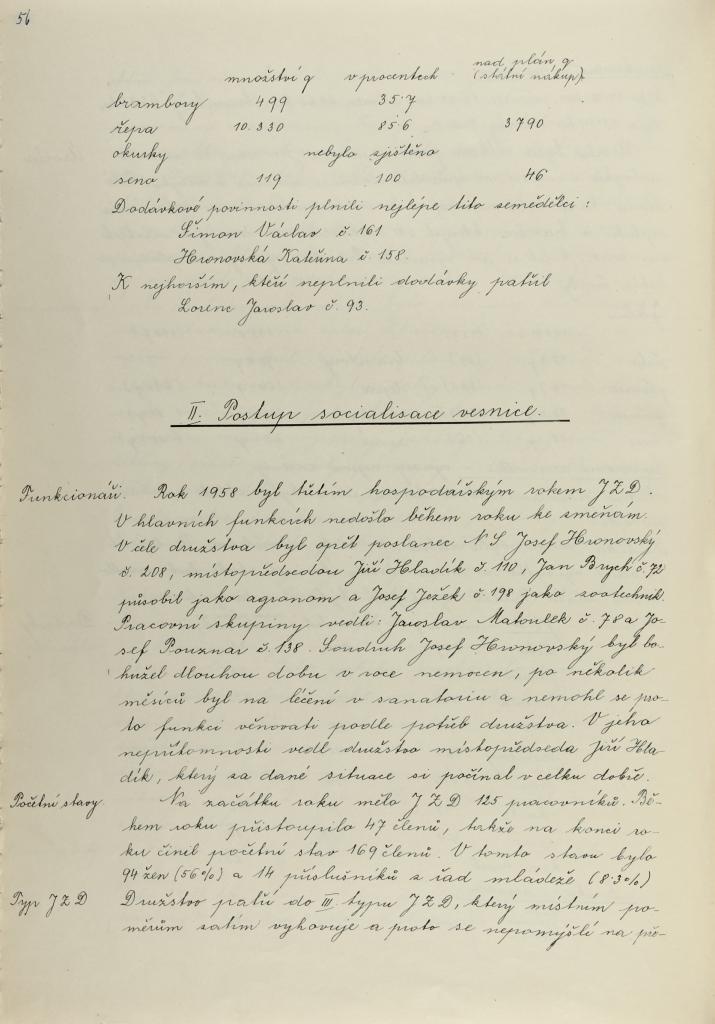 56
množství q v procentech nad plán q
(státní nákup)
brambory 499 35·7
řepa 10.330 85·6 3790
okurky nebylo zjištěno
seno 119 100 46
Dodávkové povinnosti plnili nejlépe tito zemědělci :
Šimon Václav č. 161
Hronovská Kateřina č. 158.
K nejhorším, kteří neplnili dodávky patřil
Lorenc Jaroslav č. 93.
II. Postup socialisace vesnice.
Funkcionáři. Rok 1958 byl třetím hospodářským rokem JZD.
V hlavních funkcích nedošlo během roku ke změnám.
V čele družstva byl opět poslanec NS Josef Hronovský
č. 208, místopředsedou Jiří Hladík č. 110, Jan Brych č 72
působil jako agronom a Josef Ježek č. 198 jako zootechnik.
Pracovní skupiny vedli: Jaroslav Matoulek č. 78 a Jo-
sef Pouznar č. 138. Soudruh Josef Hronovský byl bo-
hužel dlouhou dobu v roce nemocen, po několik
měsíců byl na léčení v sanatoriu a nemohl se pro-
to funkci věnovati podle potřeb družstva. V jeho
nepřítomnosti vedl družstvo místopředseda Jiří Hla-
dík, který za dané situace si počínal v celku dobře.
Početní stavy. Na začátku roku mělo JZD 125 pracovníků. Bě-
hem roku přistoupilo 47 členů, takže na konci ro-
ku činil početní stav 169 členů. V tomto stavu bylo
94 žen (56%) a 14 příslušníků z řad mládeže (8·3%)
Typ JZD Družstvo patří do III. typu JZD, který místním po-
měrům zatím vyhovuje a proto se nepomýšlí na pře-